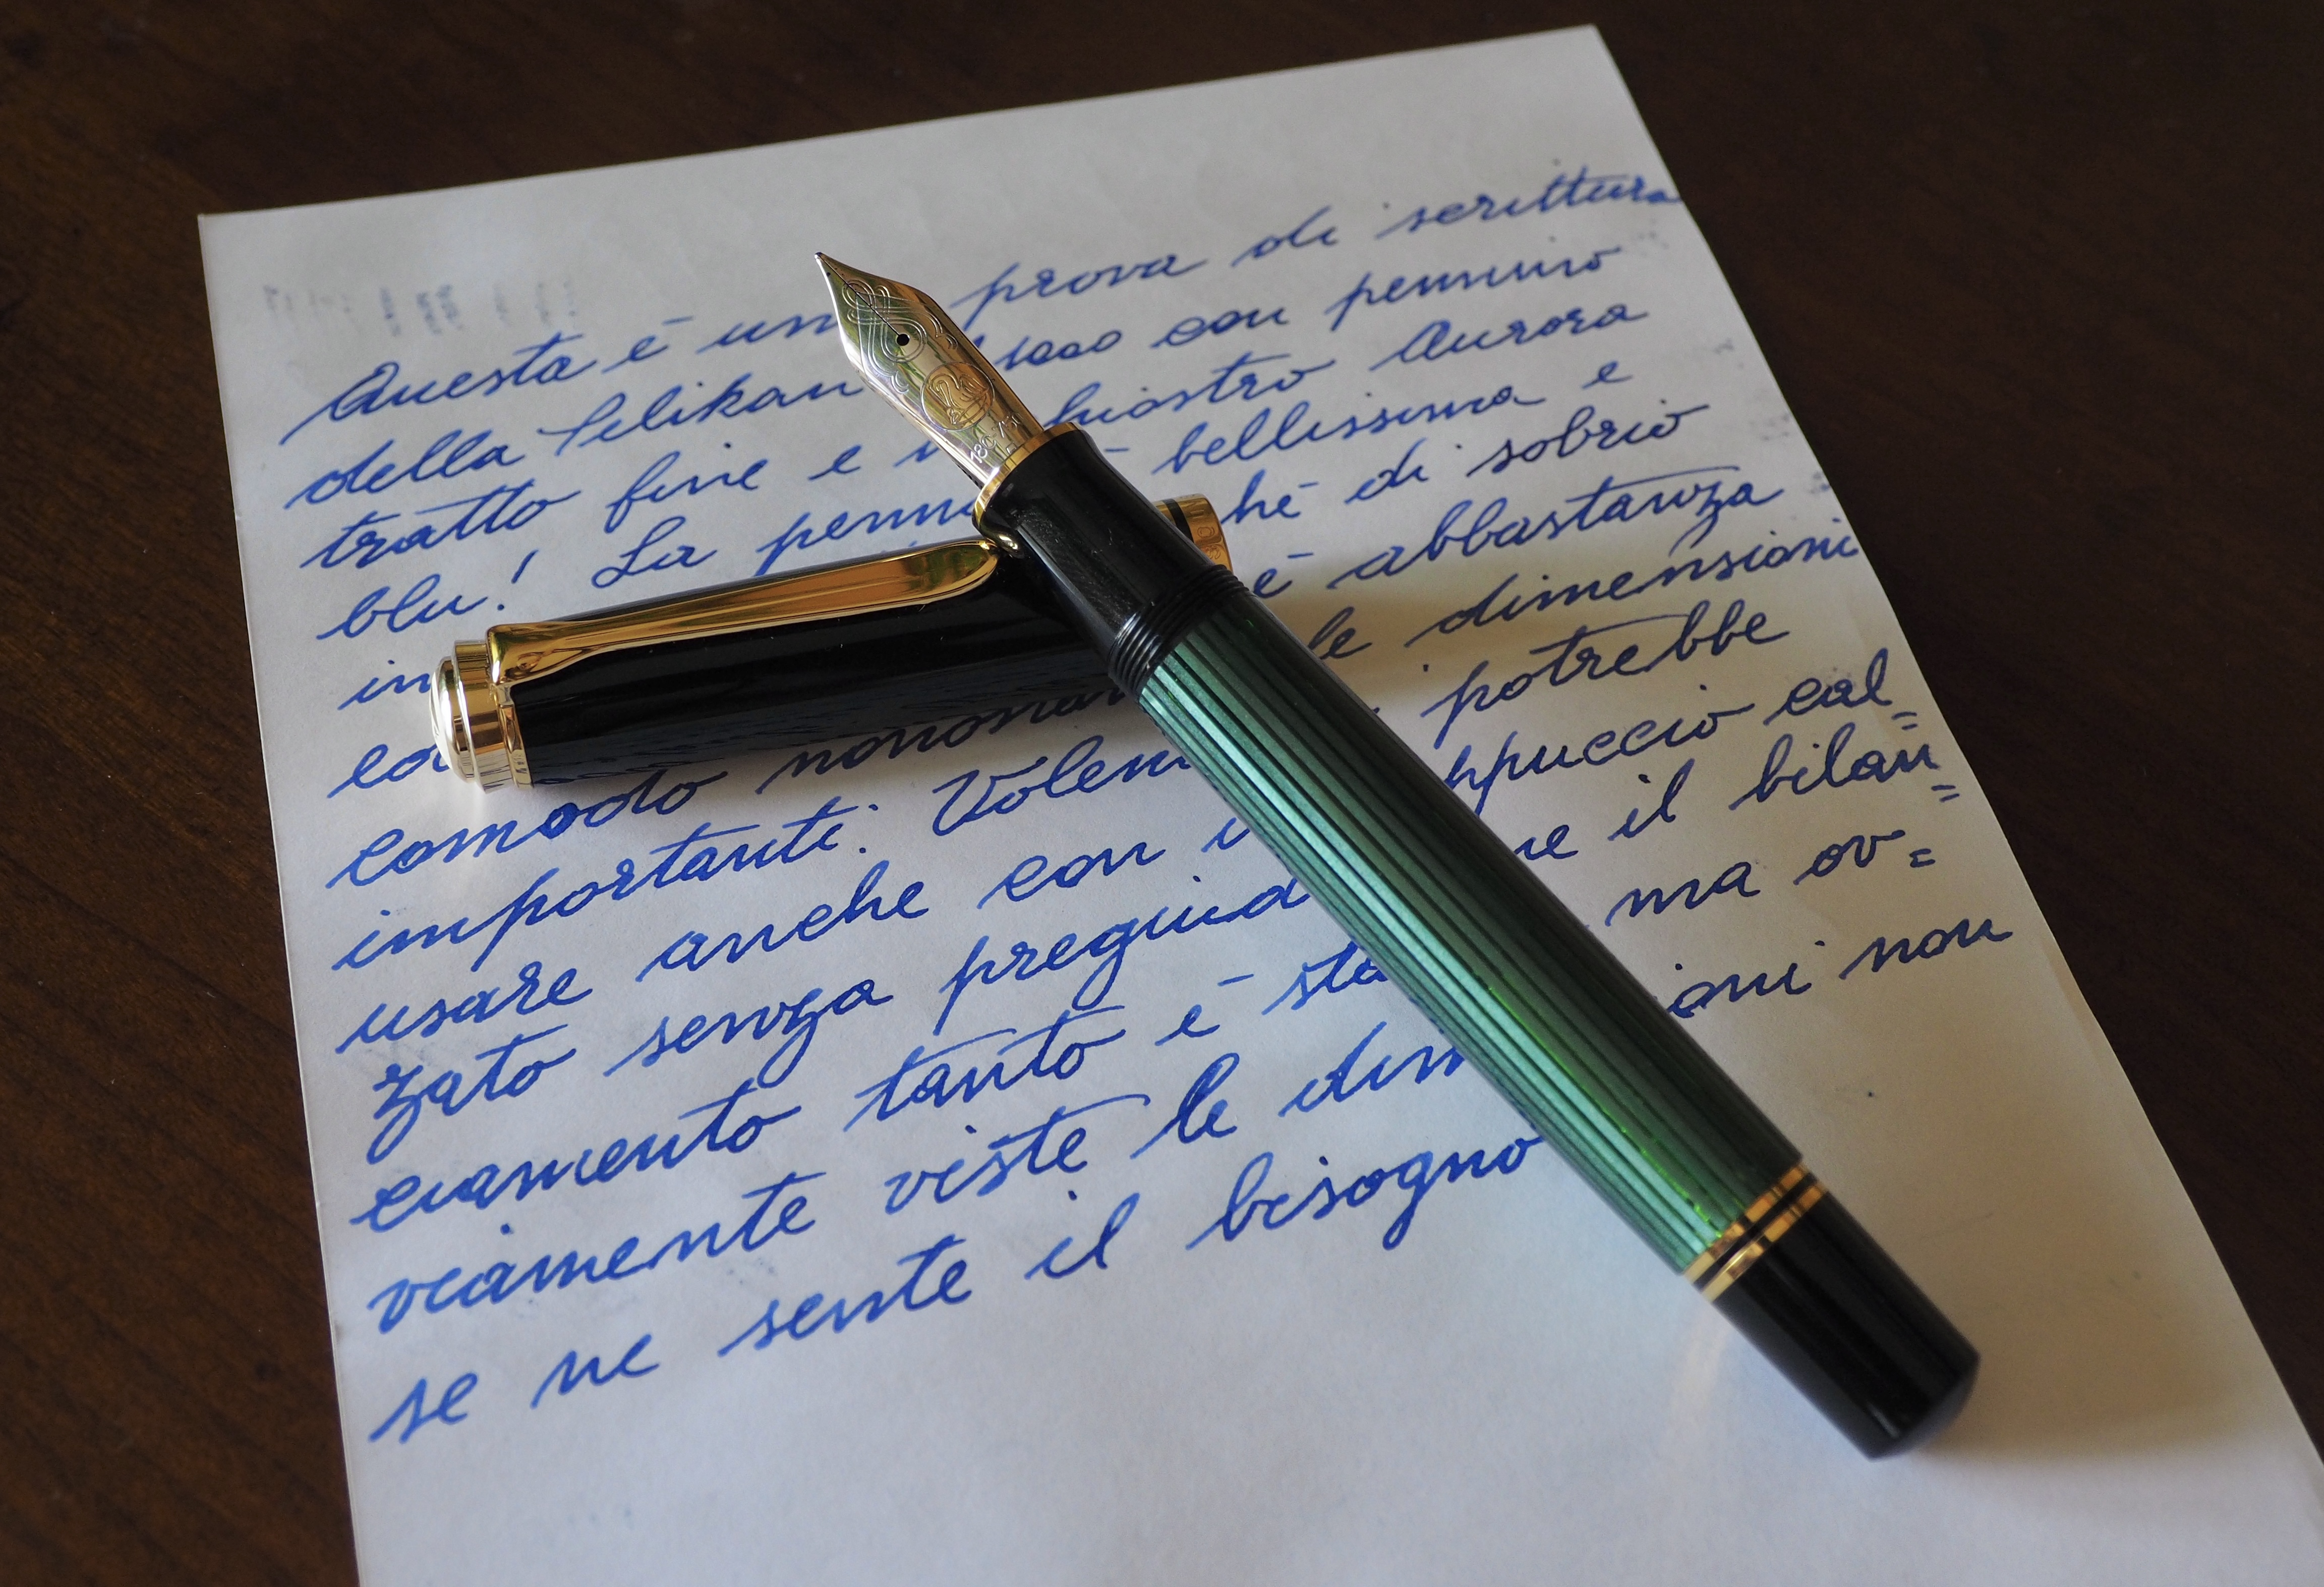 Questa è una prova di scrittura
della Pelikan 1000 con pennino
tratto fine e inchiostro Aurora
blu! La penna è bellissima e
in ché di sobrio
è abbastanza
comodo nonostante le dimensioni
importanti. Volendo si potrebbe
usare anche con il cappuccio cal=
zato senza pregiudicarne il bilan=
ciamento tanto è ma ov=
viamente viste le dimensioni non
se ne sente il bisogno
18C-750